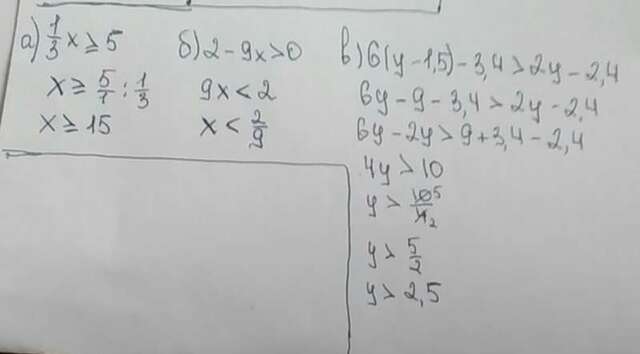 а) 1/3 x ≥ 5
x ≥ 5/1 : 1/3
x ≥ 15
б) 2 - 9x > 0
9x < 2
x < 2/9
в) 6(y - 1,5) - 3,4 > 2y - 2,4
6y - 9 - 3,4 > 2y - 2,4
6y - 2y > 9 + 3,4 - 2,4
4y > 10
y > 10 5/4 2
y > 5/2
y > 2,5